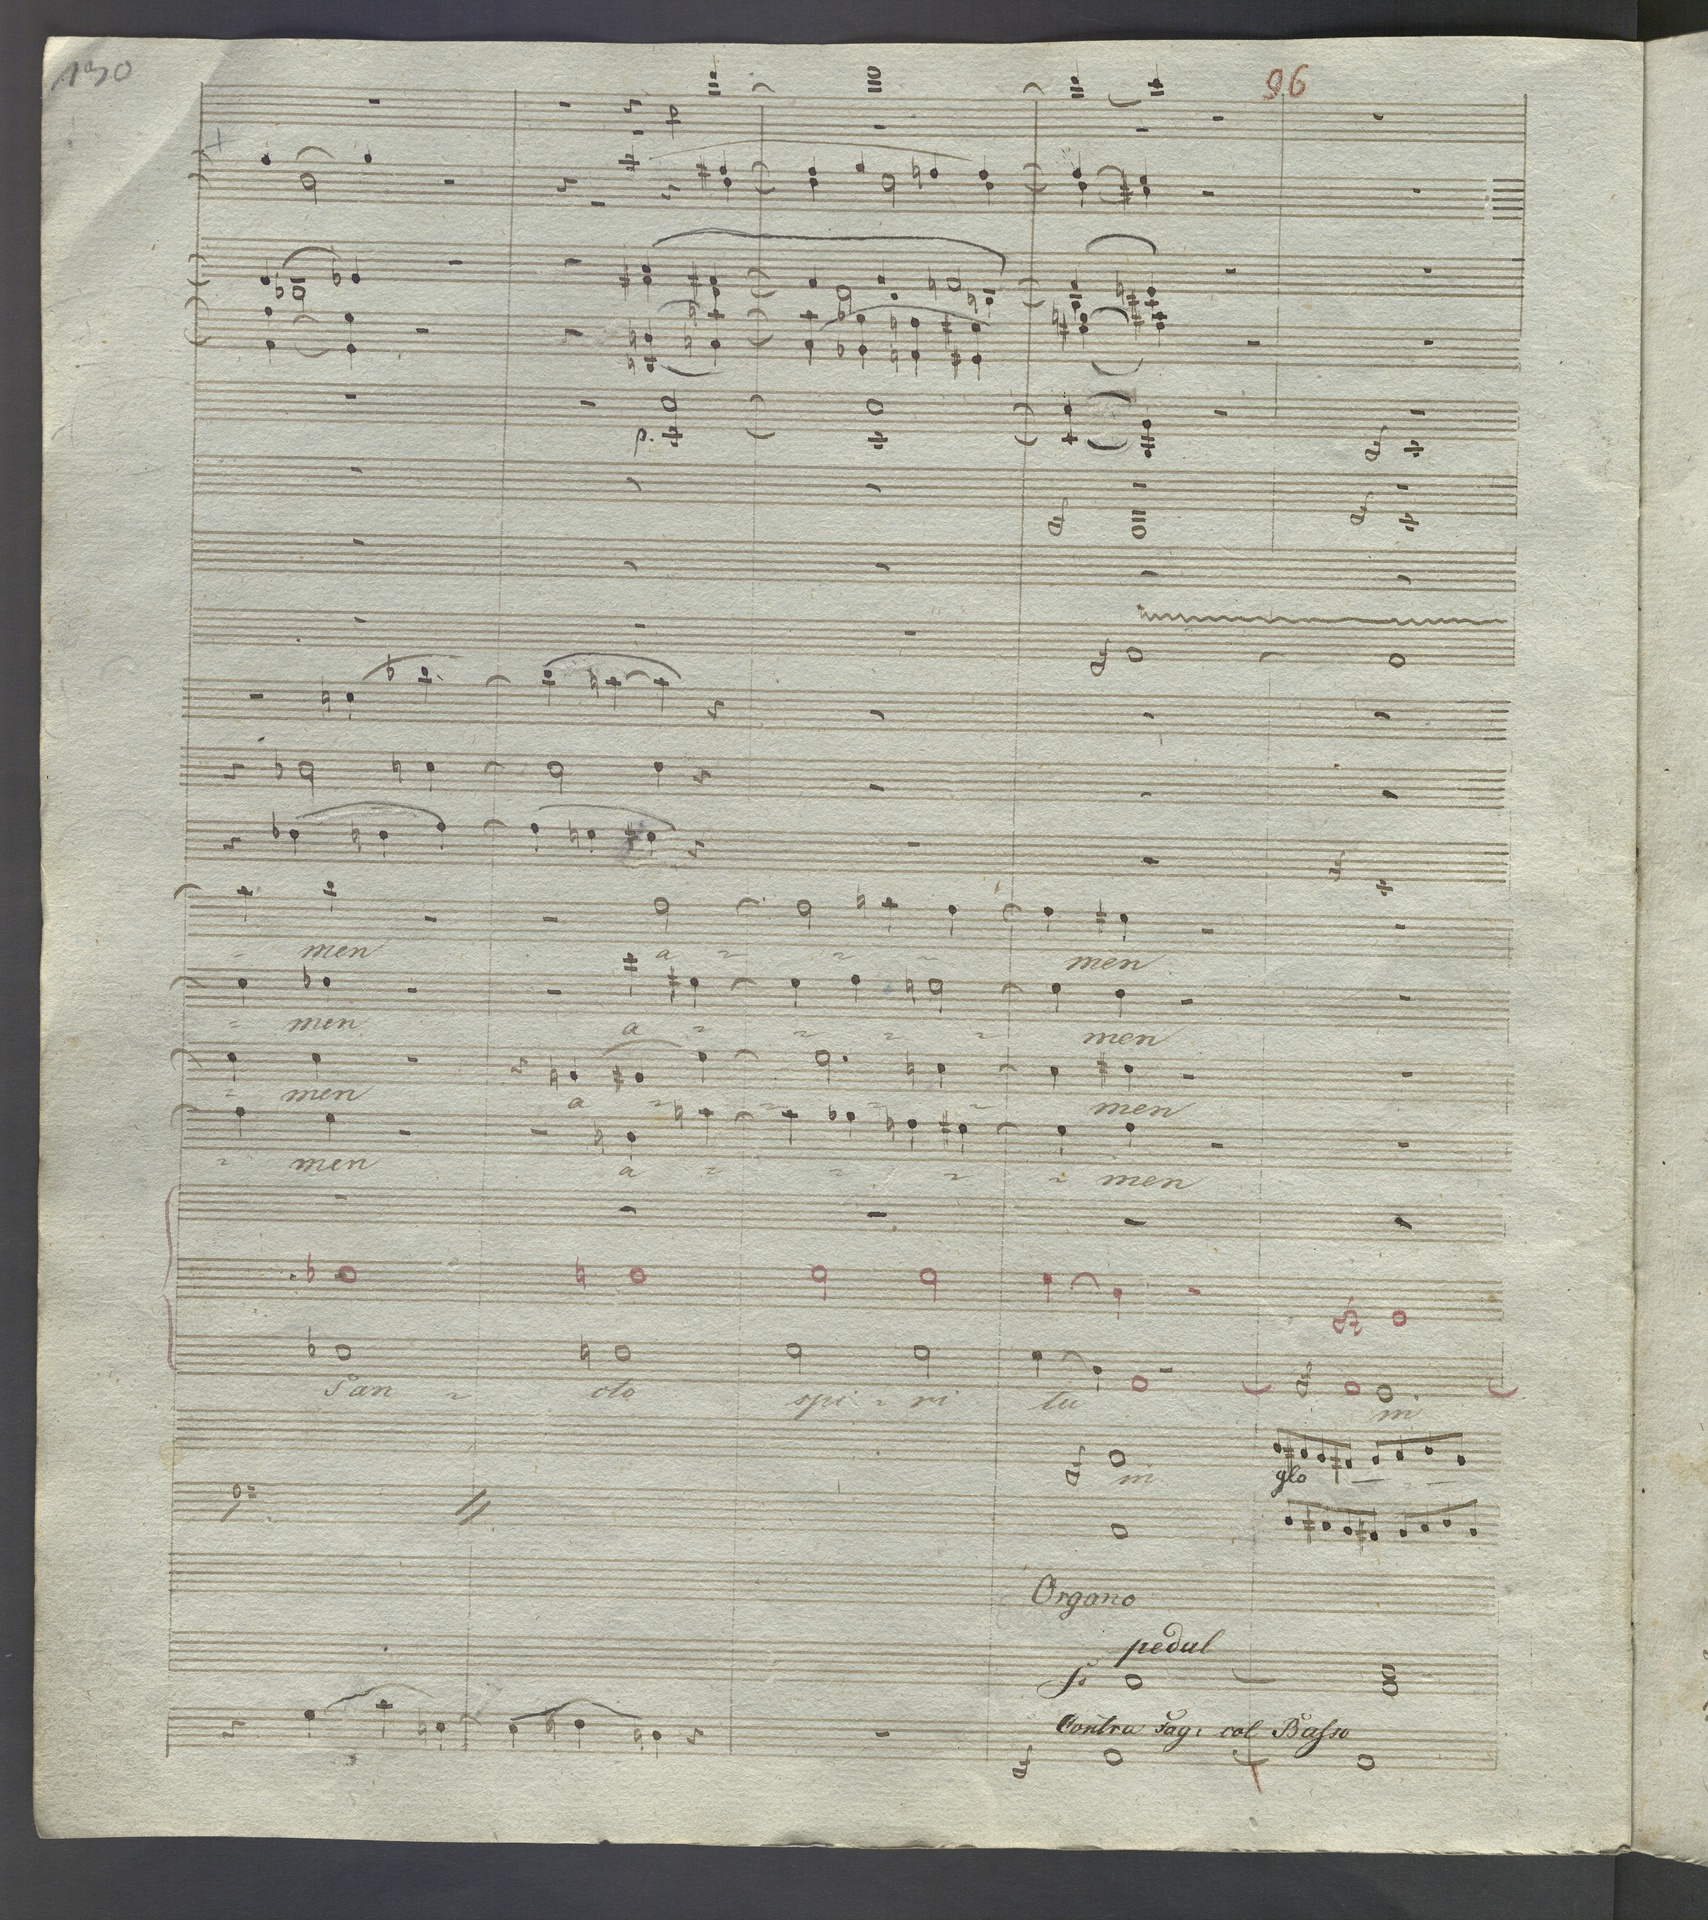 130
96
p
p.
men a men
men a men
men a men
men a men
San cto spi ri tu in
in glo
Organo
pedal
Contra fag: col Basso